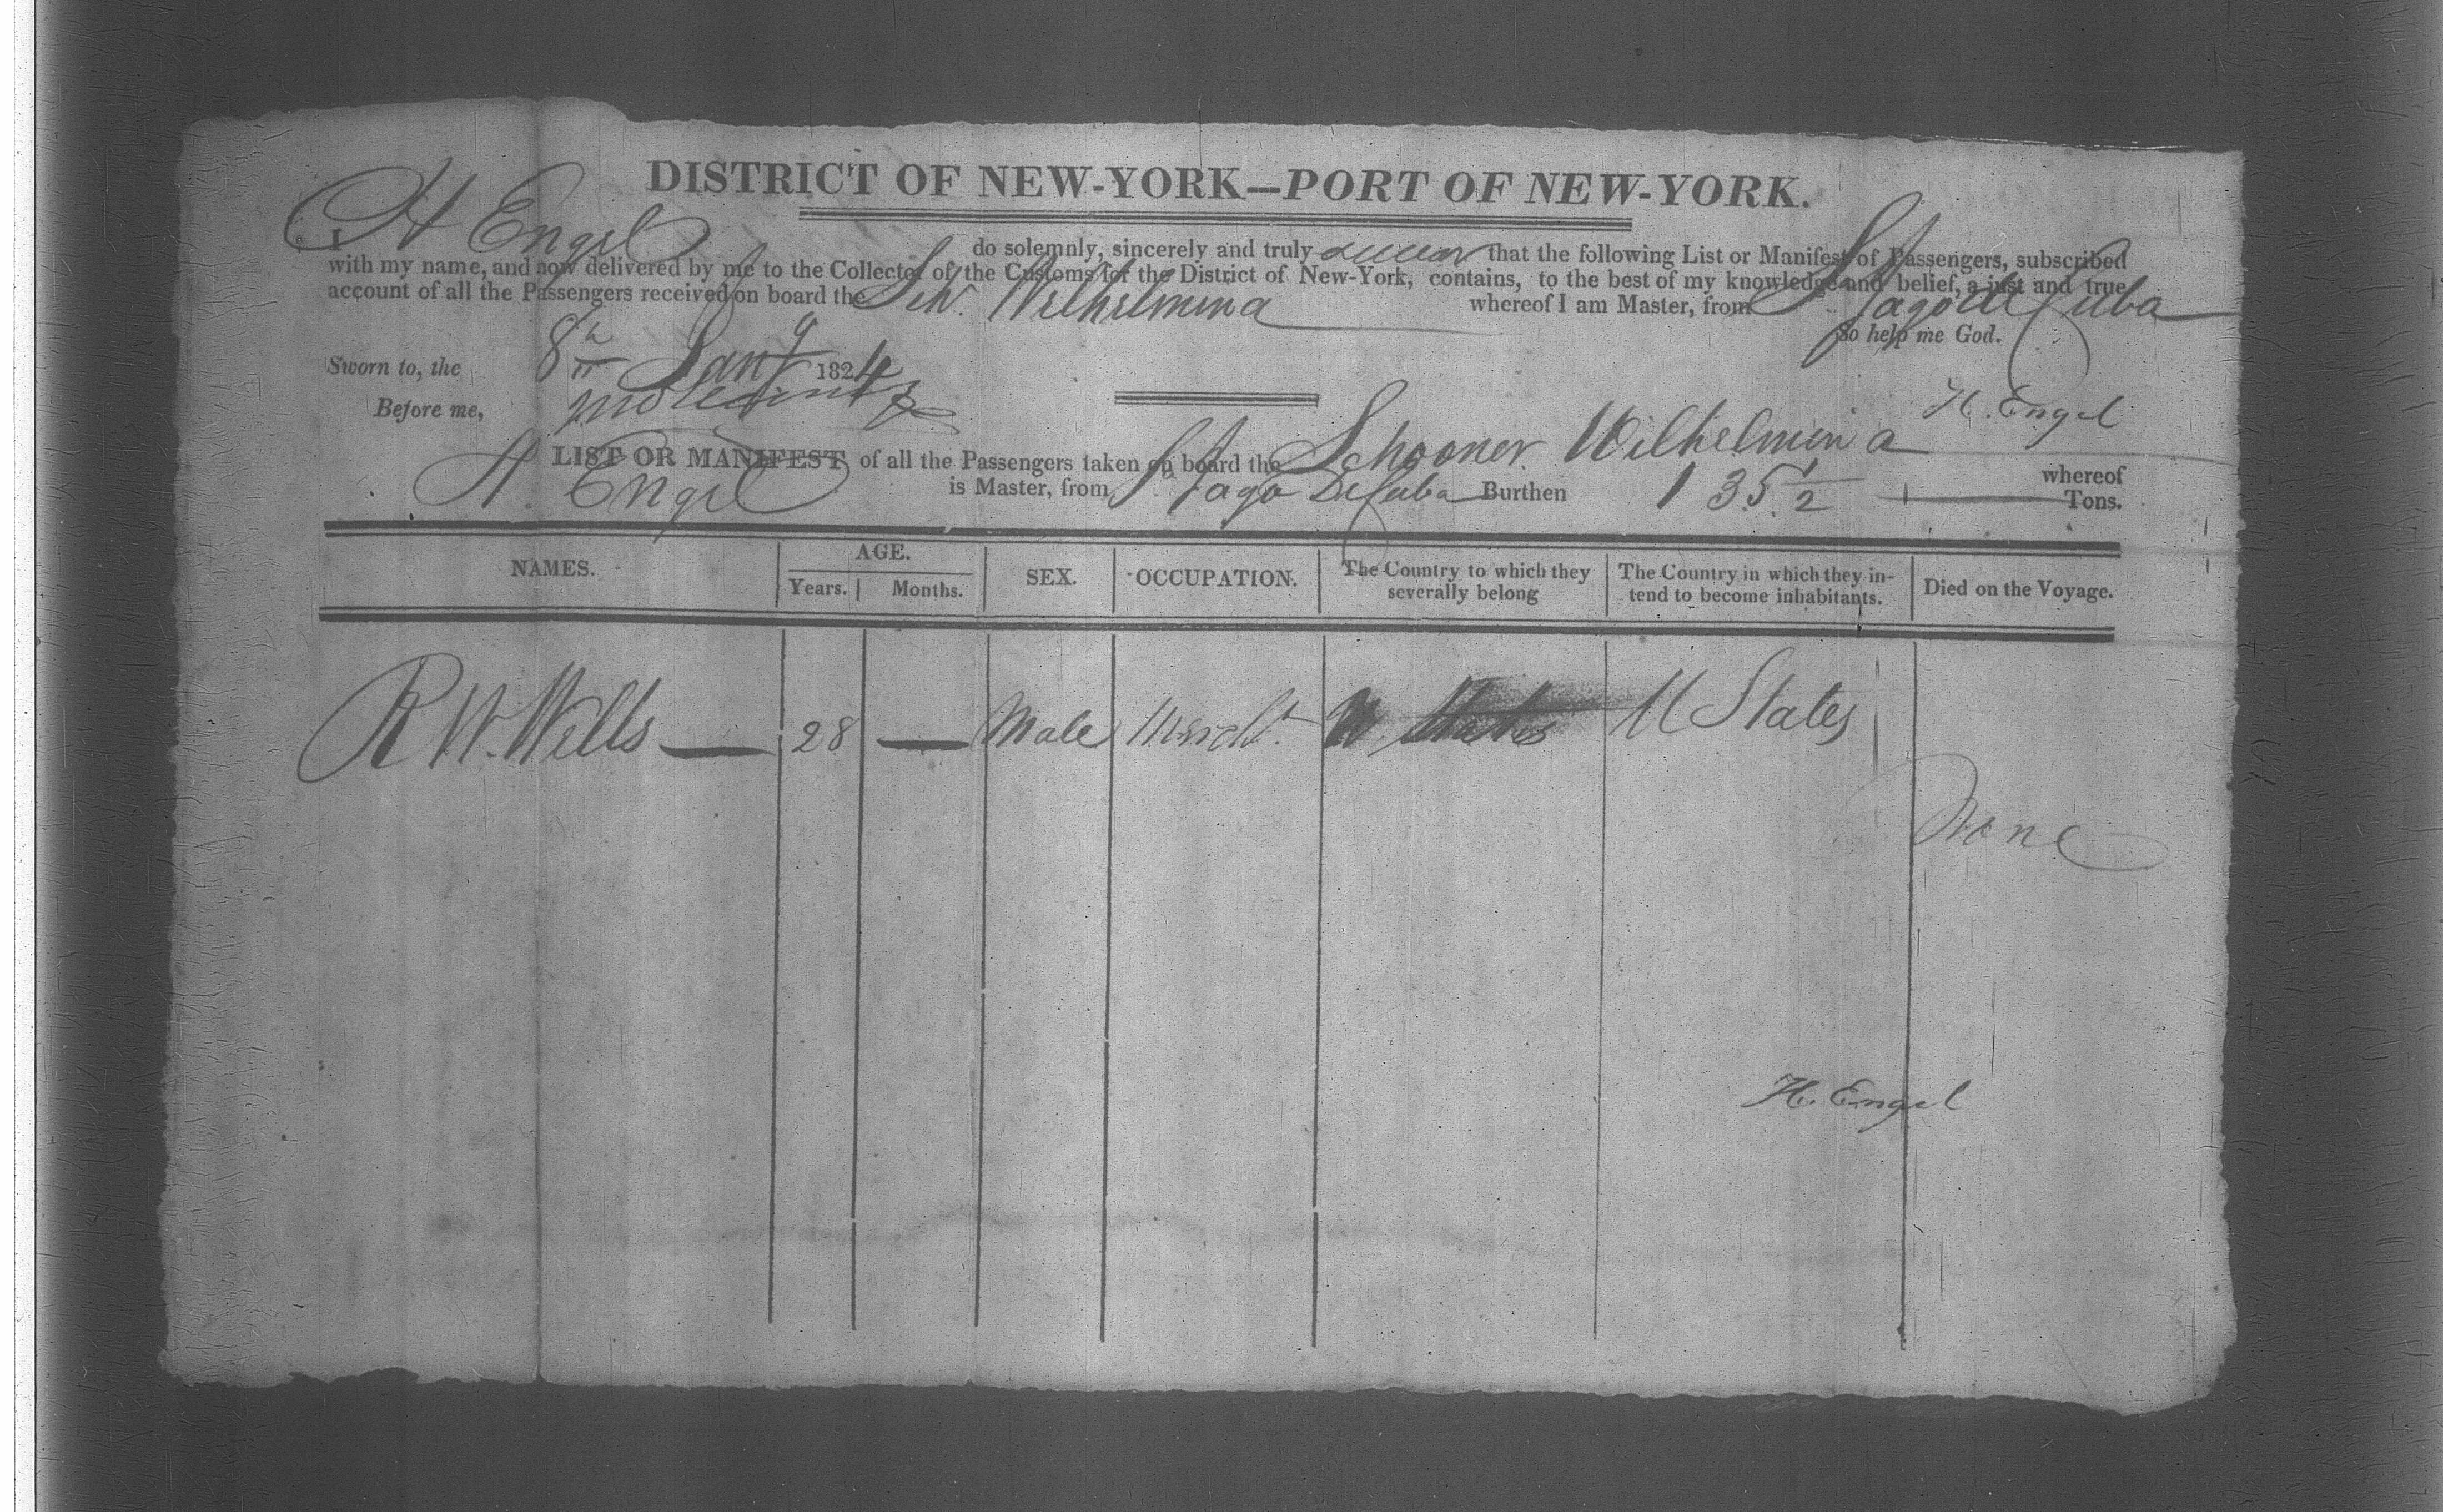 DISTRICT OF NEW-YORK—PORT OF NEW-YORK.
I H Engel do solemnly, sincerely and truly swear that the following List or Manifest of Passengers, subscribed
with my name, and now delivered by me to the Collector of the Customs for the District of New-York, contains, to the best of my knowledge and belief, a just and true
account of all the Passengers received on board the Schr. Wilhelmina whereof I am Master, from St Jago de Cuba
So help me God.
Sworn to, the 8th Jany 1824
Before me,
H. Engel
LIST OR MANIFEST of all the Passengers taken on board the Schooner Wilhelmina whereof
H. Engel is Master, from St Jago De Cuba Burthen 135 1/2 Tons.
NAMES. AGE. Years. Months. SEX. OCCUPATION. The Country to which they severally belong The Country in which they intend to become inhabitants. Died on the Voyage.
R W. Wells — 28 — Male Mercht. U. States U States
None
H. Engel